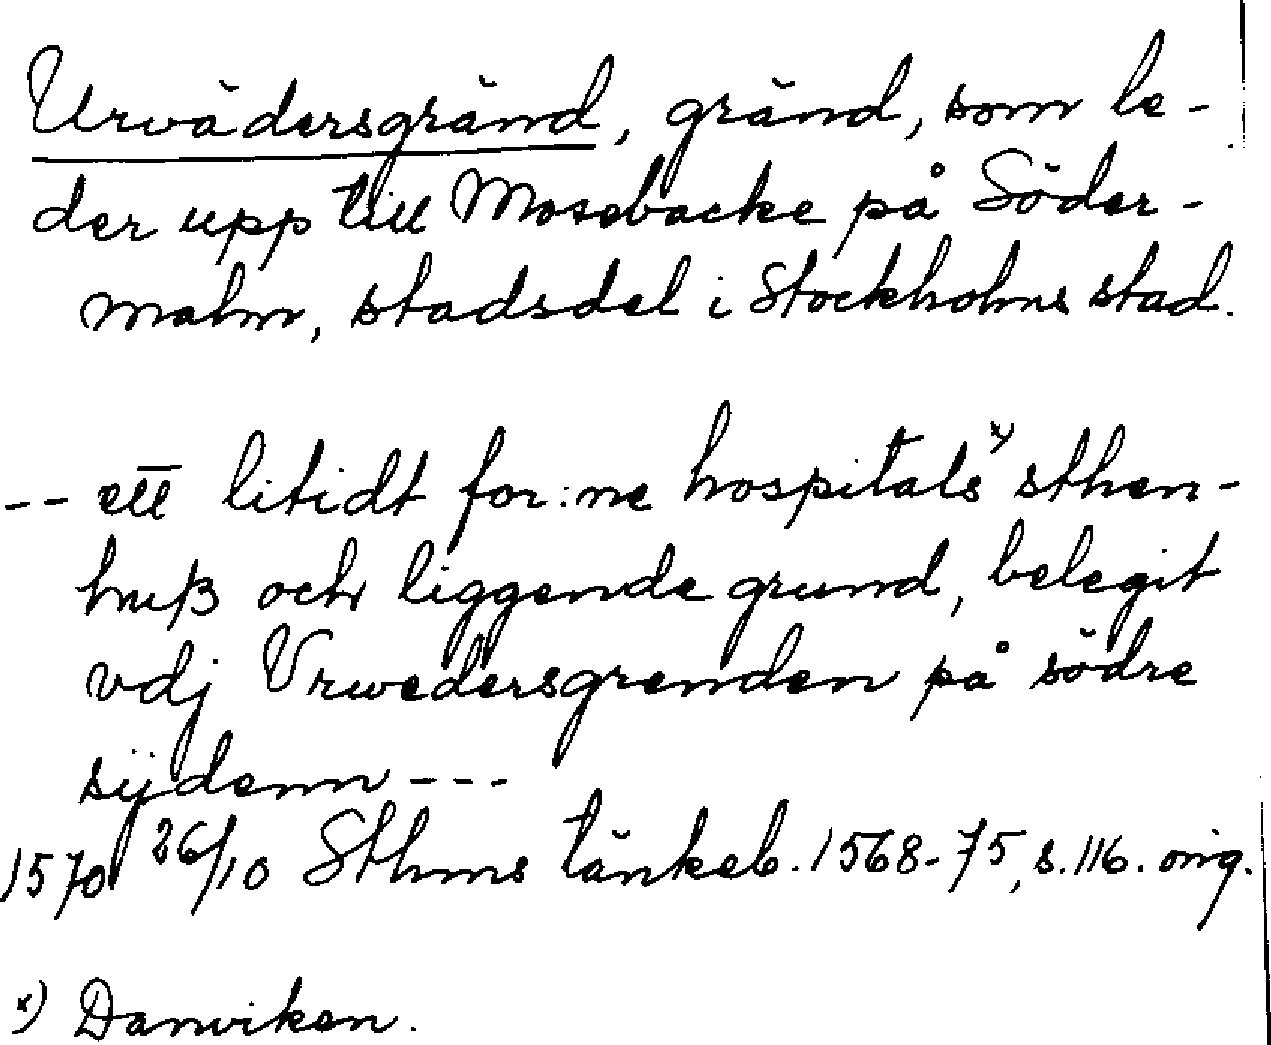 Urvädersgränd, gränd, som le-
der upp till Mosebacke på Söder-
malm, stadsdel i Stockholms stad.
-- ett litidt for:ne hospitals x) sthen-
huß och liggende grund, belegit
vdj Vrwedersgrenden på södre
sijdenn ---
1570 26/10 Sthms tänkeb. 1568-75, s. 116. orig.
x) Danviken.